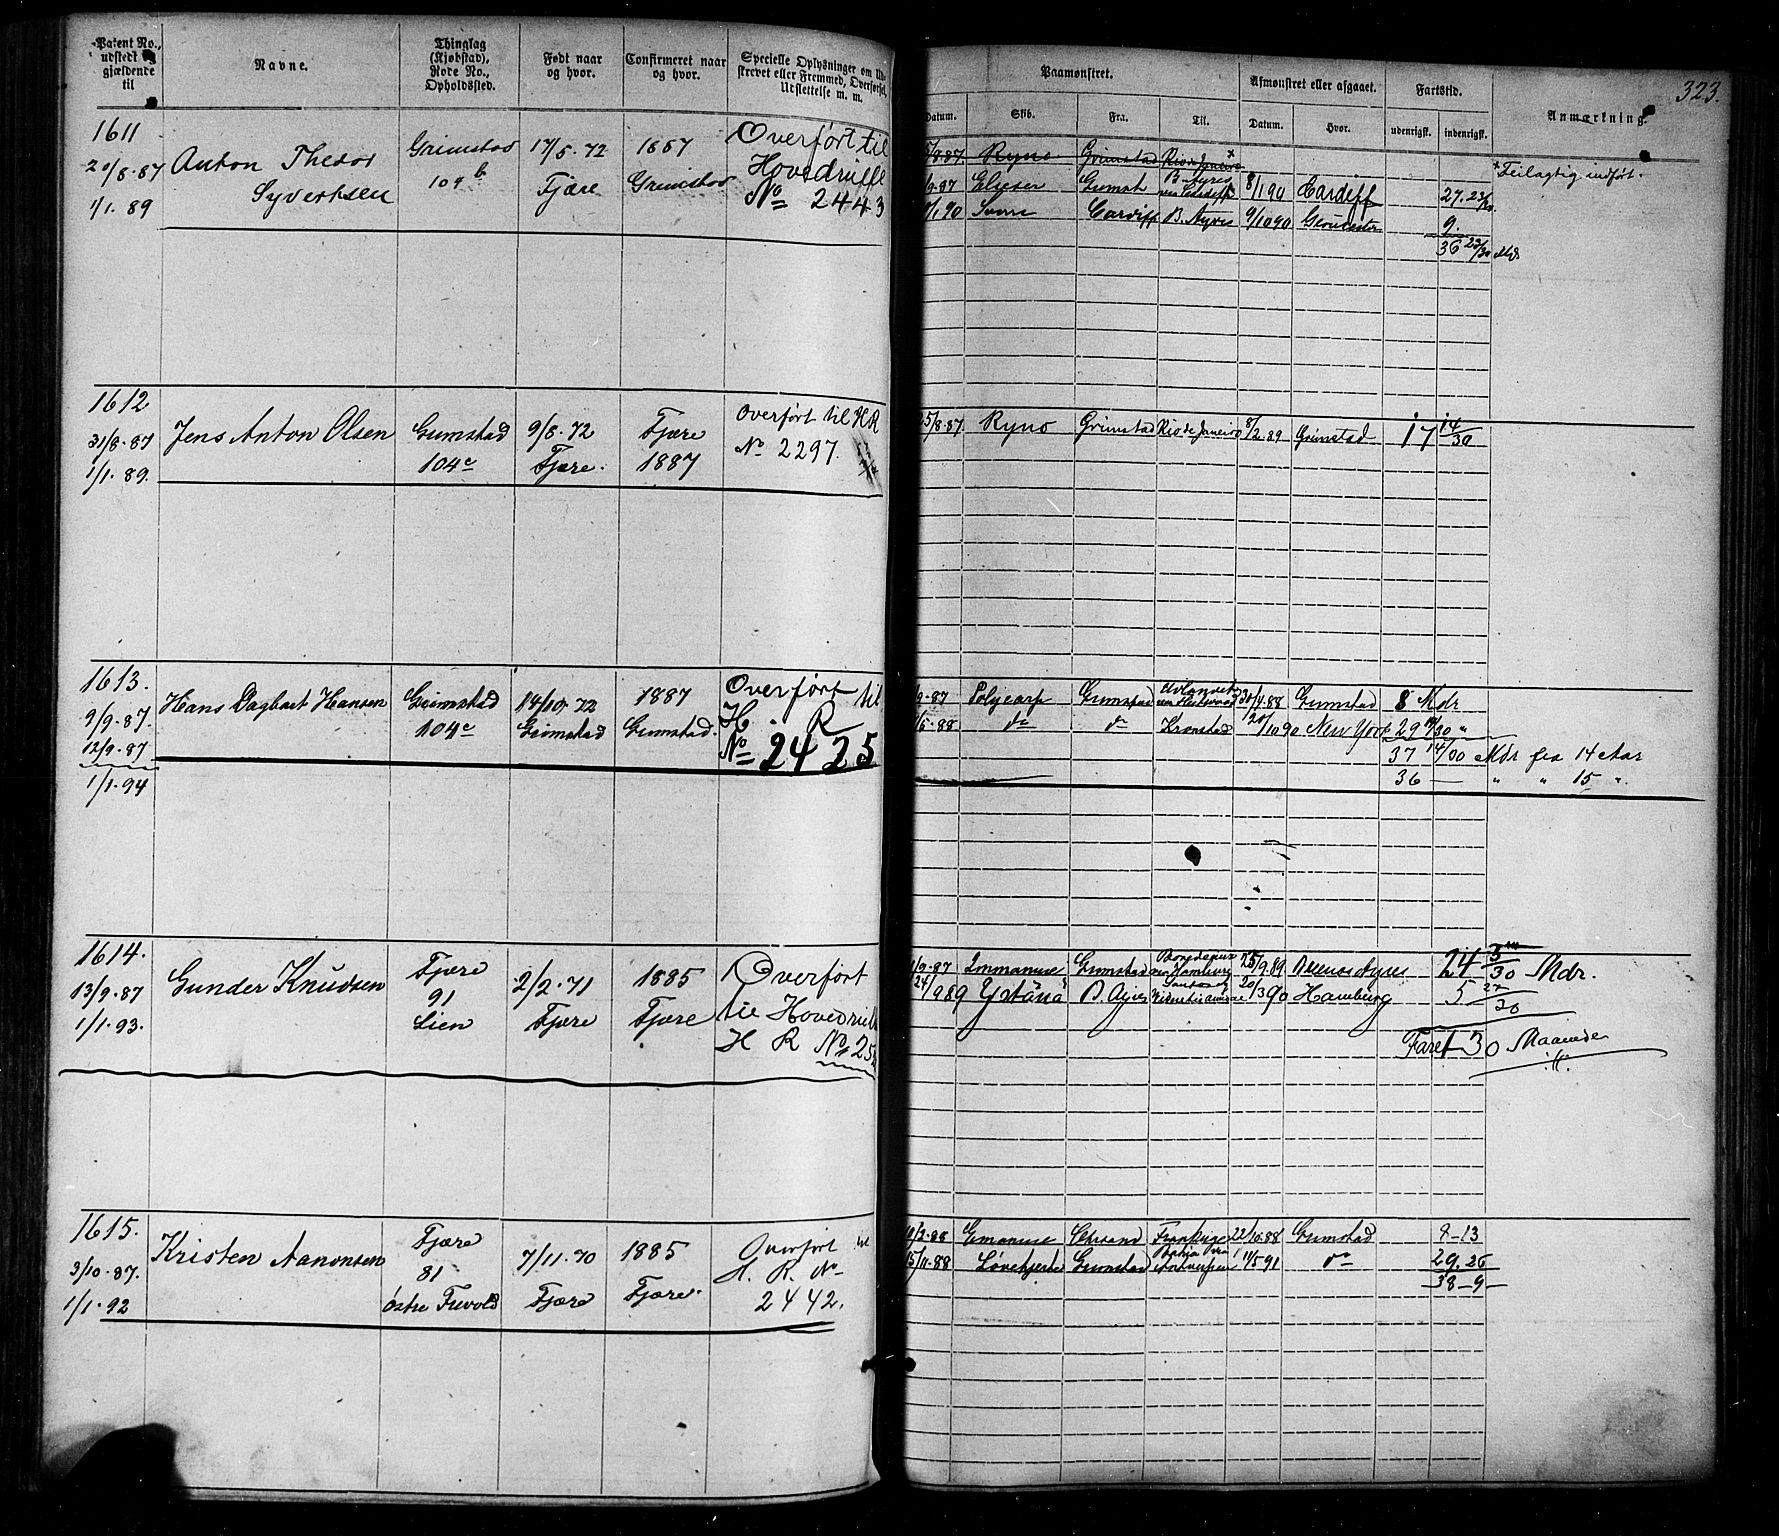 323.
Patent No., udstedt og gjældende til
Navne.
Thinglag (Kjøbstad), Rode No., Opholdssted.
Født naar og hvor.
Confirmeret naar og hvor.
Specielle Oplysninger om Udskrevet eller Fremmed, Overførsel, Udslettelse m. m.
Paamønstret.
Afmønstret eller afgaaet.
Fartstid.
Anmærkning.
Datum.
Skib.
Fra.
Til.
Datum.
Hvor.
udenrigsk.
indenrigsk.
1611
20/8-87
1/1. 89
Anton Theodor
Syvertsen
Grimstad
109 b
17/5-72
Fjære
1887
Grimstad
Overført til
Hovedrulle
No 2443
8-87 Ryno Grimstad Rio de Janeiro x
x Feilagtig indført.
9-87 Elieser Grimst B. Ayres 8/1 90 Cardiff 27. 23/30
1 90 Cardiff B. Ayres 9/10 90 Gloucester 9.
36 23/30 Mdr
1612
31/8-87
1/1. 89.
Jens Anton Olsen
Grimstad
104c
9/8-72
Fjære.
Fjære
1887
Overført til HR
No 2297.
25/8-87 Ryno Grimstad Rio de Janeiro 8/2. 89 Grimstad 17 14/30
1613.
9/9-87.
12/9-87
1/1-94
Hans Dagbart Hansen
Grimstad
104c
14/10-72
Grimstad
1887
Grimstad.
Overført til
H. R
No 2425
9-87 Polycarp Grimstad 4.88 Grimstad 8 Mdr
5-88 do do Kronstad 10 90 New York 29 /30 "
37 14/30 Mdr fra 14 Aar
36 — " " 15 "
1614.
13/9-87
1/1. 93.
Gunder Knudsen
Fjære
91
Lien
2/2-71
Fjære
1885
Fjære
Overført
til Hovedrull
H R No 25
9-87 Immanuel Grimstad Hamburg 25/9.89 Buenos Ayres 24 3/30 Mdr.
24/9 89 B. Ayres 20/3 90 Hamburg 5 27/30
Faret 30 Maaneder
1615.
3/10-87.
1/1-92
Kristen Aanonsen
Fjære
81
østre Trevold
7/11-70
Fjære
1885
Fjære.
Overført til
H. R. No
2442.
88 Emanuel Chrsand 22/10.88 Grimstad 13
15/11-88 Løvehjerte Grimstad Bahia Antwerpen 11/5 91 do 29. 26
38-9